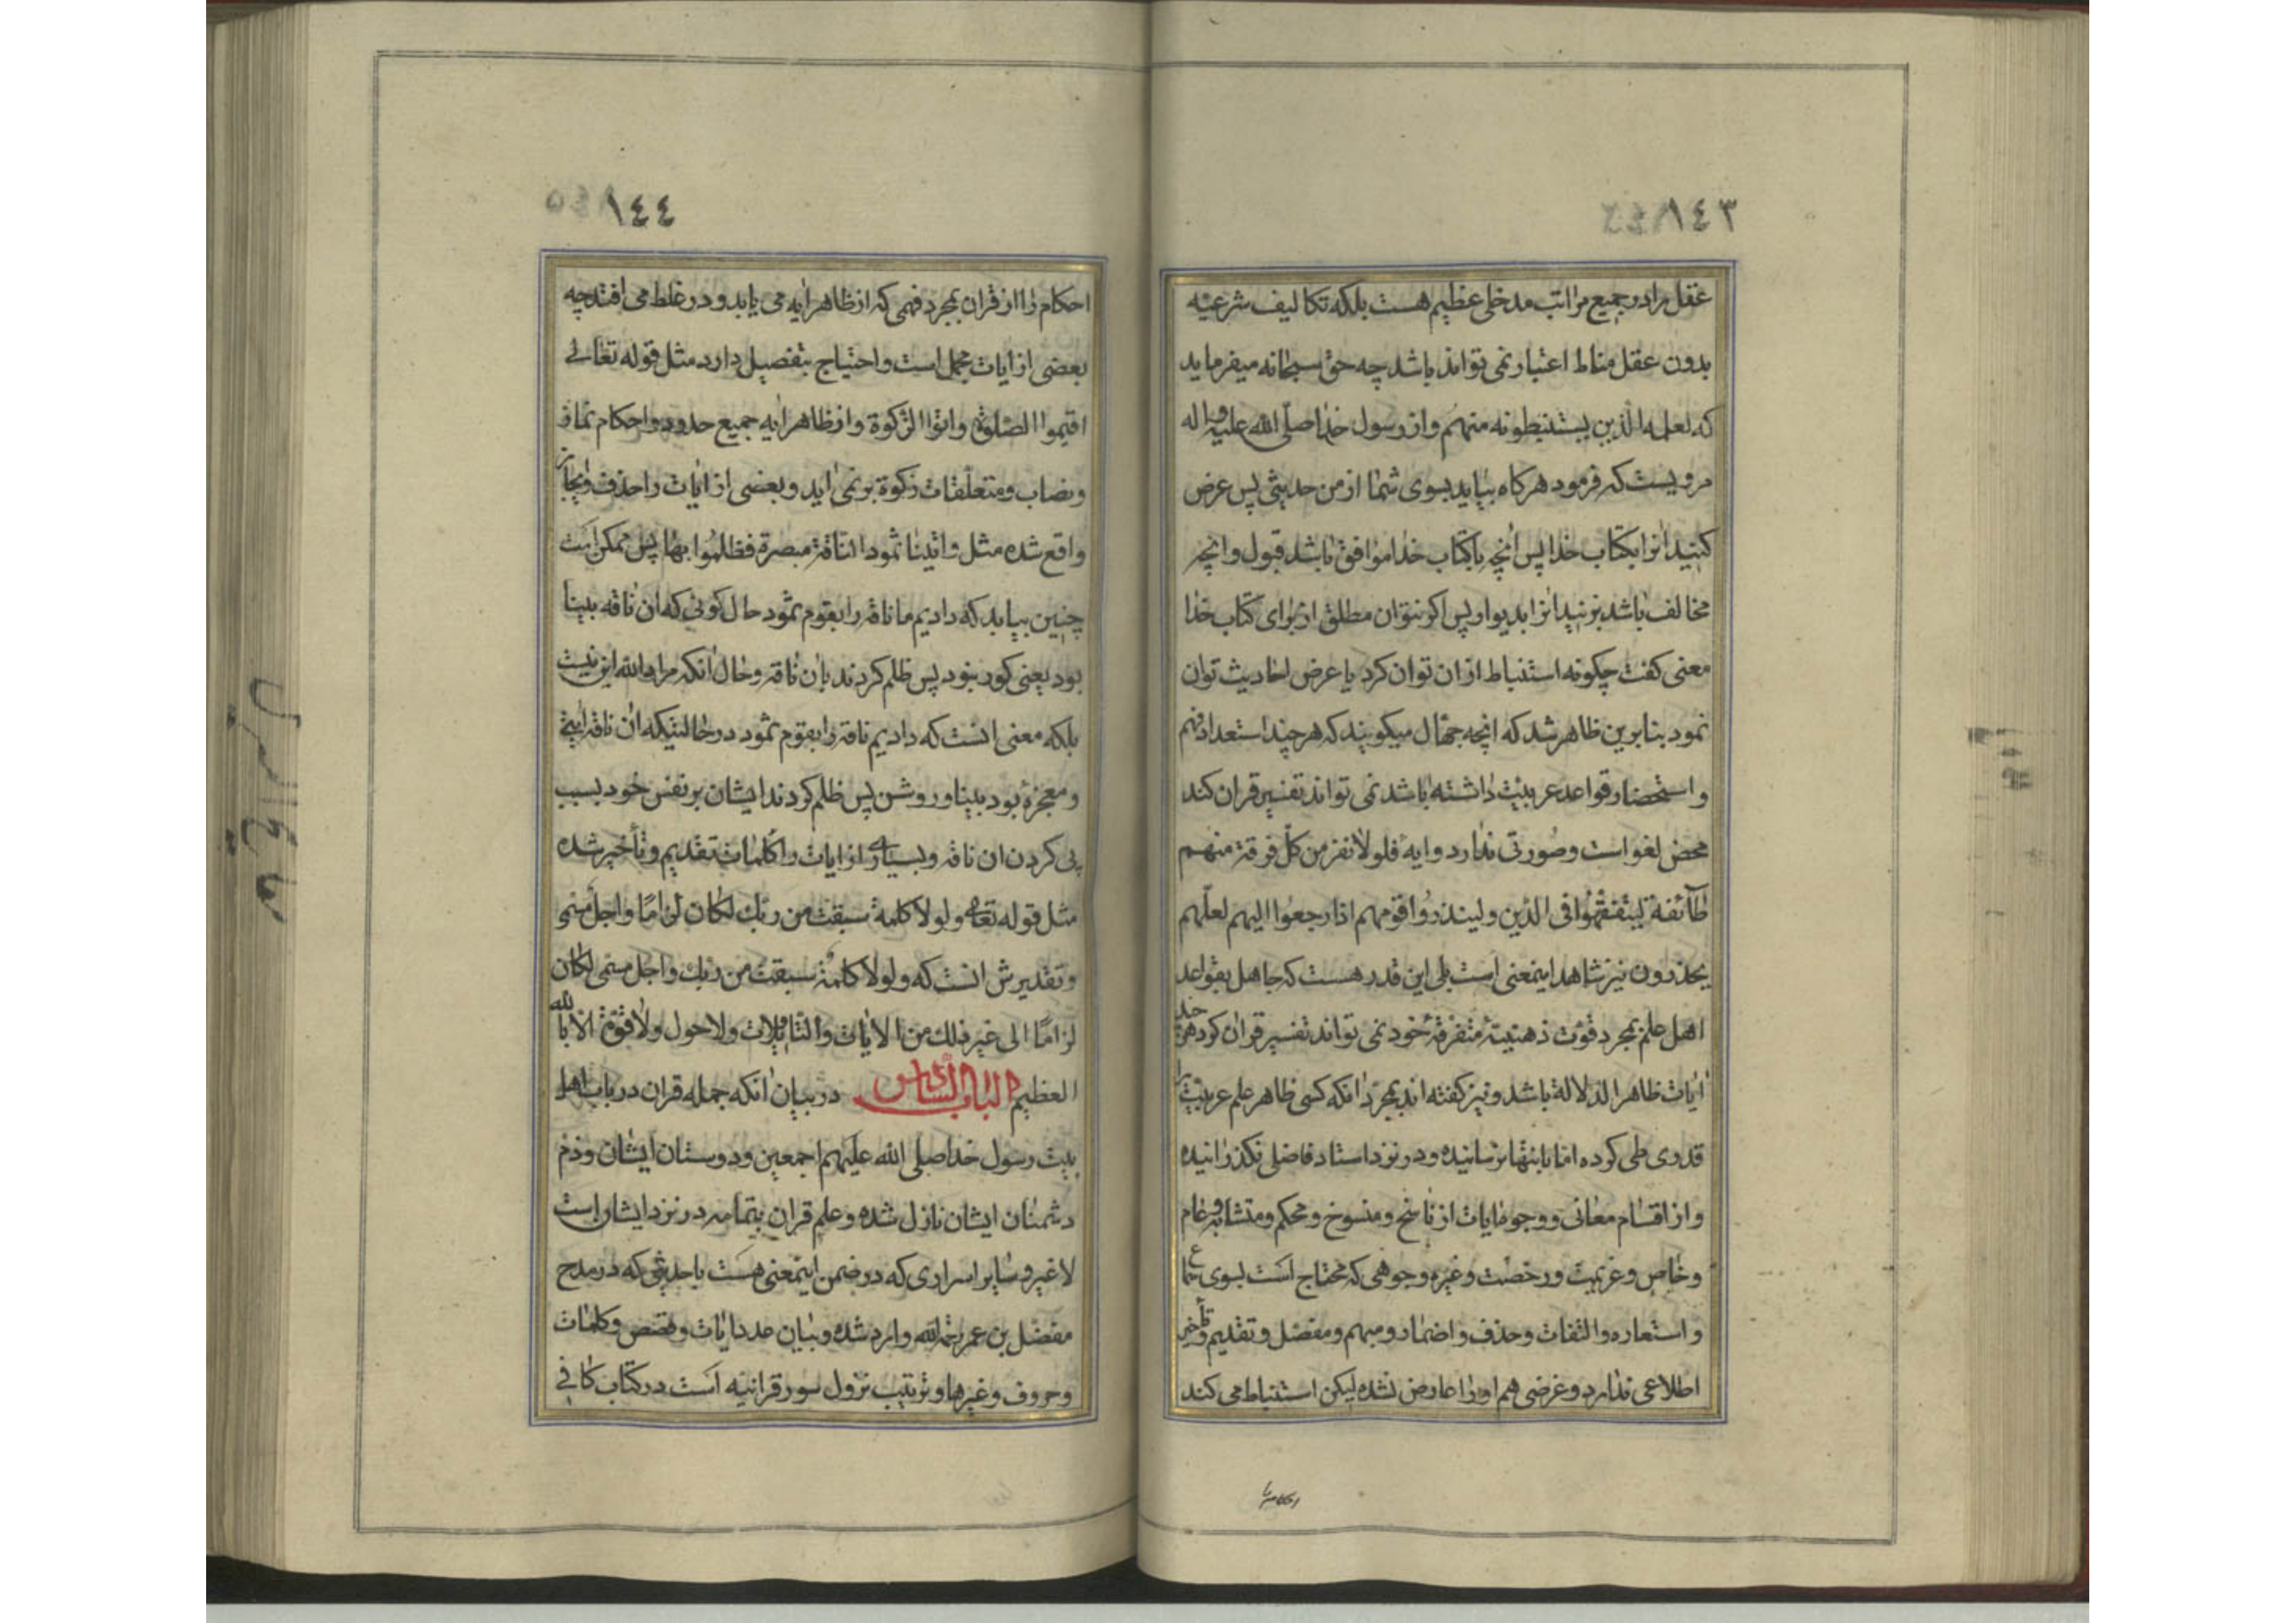 ١٤٣
عقل را در جمیع مراتب مدخلی عظیم هست بلکه تکالیف شرعیه
بدون عقل مناط اعتبار نمی تواند باشد چه حق سبحانه میفرماید
که لعلمه الذین یستنبطونه منهم و از رسول خدا صلّی الله علیه و اله
مرویست که فرمود هرکاه بیاید بسوی شما از من حدیثی پس عرض
کنید انرا بکتاب خدا پس انچه با کتاب خدا موافق باشد قبول و انچه
مخالف باشد بزنید انرا بدیوار پس اکر نتوان مطلق از برای کتاب خدا
معنی کفت چکونه استنباط از ان توان کرد یا عرض احادیث توان
نمود بنابرین ظاهر شد که انچه جهّال میکویند که هر چند استعداد فهم
و استحضار قواعد عربیّت داشته باشد نمی تواند تفسیر قران کند
محض لغو است و صورتی ندارد و ایهٔ فلولا نفر من کلّ فرقة منهم
طآئفة لیتفقّهوا فی الدّین و لینذروا قومهم اذا رجعوا الیهم لعلّهم
یحذرون نیز شاهد اینمعنی است بلی این قدر هست که جاهل بقواعد
اهل علم بمجرد قوّت ذهنیّهٔ متفرقهٔ خود نمی تواند تفسیر قران کرد هر چند
ایات ظاهر الدلالة باشد و نیز کفته اند بمجرّد انکه کسی ظاهر علم عربیّت را
قدری طی کرده امّا بانتها نرسانیده و در نزد استاد فاضلی نکذرانیده
و از اقسام معانی و وجوه ایات از ناسخ و منسوخ و محکم و متشابه و عام
و خاص و عزیمت و رخصت و غیره وجوهی که محتاج است بسوی سماع
و استعاره و التفات و حذف و اضمار و مبهم و مفصّل و تقدیم و تأخیر
اطلاعی ندارد و غرضی هم او را عارض نشده لیکن استنباط می کند
احکام را
١٤٤
احکام را از قران بمجرد فهمی که از ظاهر ایه می یابد و در غلط می افتد چه
بعضی از ایات مجمل است و احتیاج بتفصیل دارد مثل قوله تعالی
اقیموا الصّلوة و اتوا الزّکوة و از ظاهر ایه جمیع حدود و احکام نماز
و نصاب و متعلّقات زکوة بر نمی اید و بعضی از ایات را حذف و مجاز
واقع شده مثل و اتینا ثمود الناقة مبصرة فظلموا بها پس ممکن است
چنین بیاید که دادیم ما ناقه را بقوم ثمود حال کونی که ان ناقه بینا
بود یعنی کور نبود پس ظلم کردند بان ناقه و حال انکه مراد الله این نیست
بلکه معنی انست که دادیم ناقه را بقوم ثمود در حالتیکه ان ناقه ایتی
و معجزهٔ بود بینا و روشن پس ظلم کردند ایشان بر نفس خود بسبب
پی کردن ان ناقه و بسیاری از ایات را کلمات تقدیم و تأخیر شده
مثل قوله تعالی و لولا کلمة سبقت من ربّك لکان لزامًا و اجل مسمّی
و تقدیرش انست که و لولا کلمة سبقت من ربّك و اجل مسمّی لکان
لزامًا الی غیر ذلك من الایات و التاویلات و لا حول و لا قوّة الّا بالله
العظیم الباب السّادس در بیان انکه جمله قران در باب اهل
بیت رسول خدا صلی الله علیهم اجمعین و دوستان ایشان و ذم
دشمنان ایشان نازل شده و علم قران بتمامه در نزد ایشان است
لا غیر و سایر اسراری که در ضمن اینمعنی هست با حدیثی که در مدح
مفضل بن عمر رحمه الله وارد شده و بیان عدد ایات و قصص و کلمات
و حروف و غیرها و ترتیب نزول سور قرانیه است در کتاب کافی